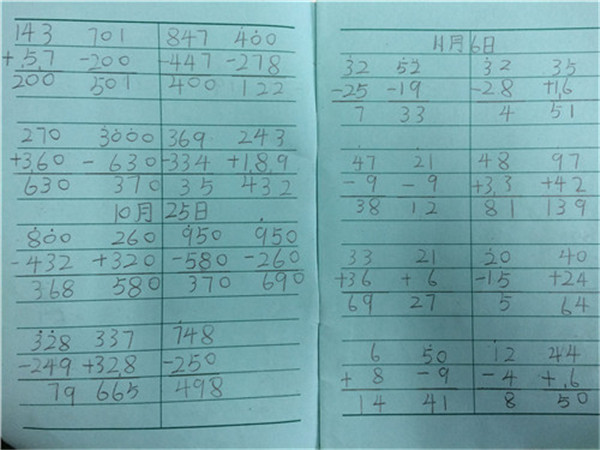 143 701 847 400
+57 -200 -447 -278
200 501 400 122
270 3000 369 243
+360 -630 -334 +189
630 370 35 432
10月25日
800 260 950 950
-432 +320 -580 -260
368 580 370 690
328 337 748
-249 +328 -250
79 665 498
11月6日
32 52 32 35
-25 -19 -28 +16
7 33 4 51
47 21 48 97
-9 -9 +33 +42
38 12 81 139
33 21 20 40
+36 +6 -15 +24
69 27 5 64
6 50 12 44
+8 -9 -4 +6
14 41 8 50